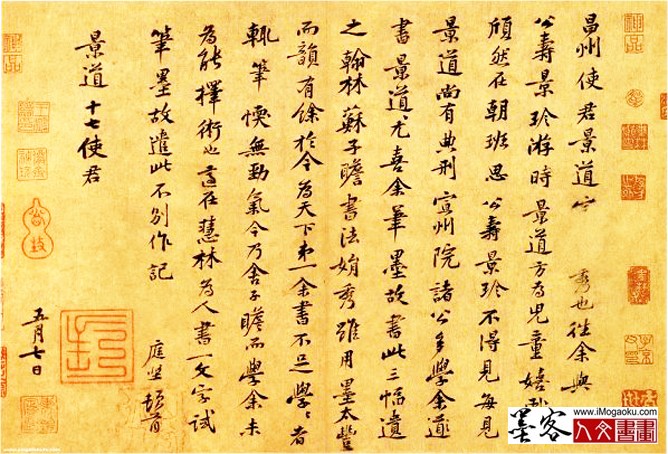 昌州使君景道宗秀也往余與
公壽景珍游時景道方為兒童嬉
頎然在朝班思公壽景珍不得見每見
景道尚有典刑宣州院諸公多學余
書景道尤喜余筆墨故書此三幅遺
之翰林蘇子瞻書法娟秀雖用墨太豐
而韻有餘於今為天下第一余書不足學學者
輒筆愞無勁氣今乃舍子瞻而學余未
為能擇術也適在慧林為人書一文字試
筆墨故遣此不別作記
庭堅頓首
景道十七使君
五月七日
神品
墨客
www.iMogaoku.com
人文書畫